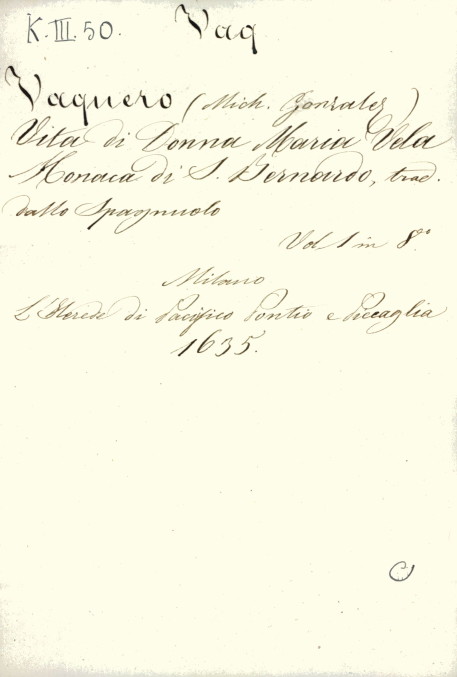 K.III.50. Vaq
Vaquero (Mich. Gonzales)
Vita di Donna Maria Vela
Monaca di S. Bernardo, trad.
dallo Spagnuolo
Vol 1 in 8.°
Milano
L'Erede di Pacifico Pontio e Piccaglia
1635.